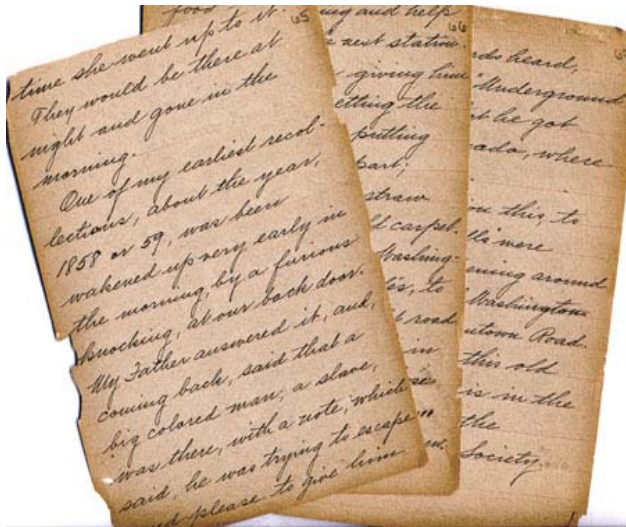 65
time she went up to it.
They would be there at
night and gone in the
morning.
One of my earliest recol-
lections, about the year,
1858 or 59, was been
wakened up very early in
the morning, by a furious
knocking, at our back door.
My Father answered it, and,
coming back, said that a
big colored man, a slave,
was there, with a note, which
said, he was trying to escape
please to give him
66
food
and help
next station.
giving him
getting the
putting
part;
straw
carpet.
Washing-
to
road
in
heard,
"Underground
he got
where
this, to
were
around
Washington
Road.
this old
is in the
the
Society.